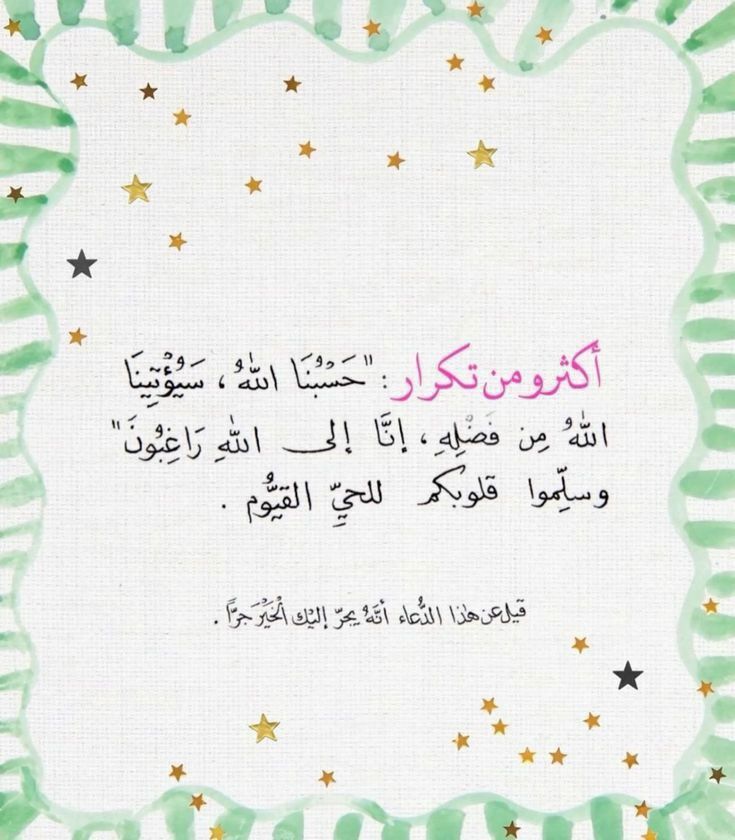 أكثرو من تكرار : "حَسْبُنَا اللهُ ، سَيُؤْتِينَا
اللهُ مِن فَضْلِهِ ، إنَّا إلى اللهِ رَاغِبُونَ"
وسلِّموا قلوبكم للحيِّ القيُّوم .
قيل عن هذا الدُّعاء أنَّهُ يجرّ إليك الخَيْرَ جرًّا .